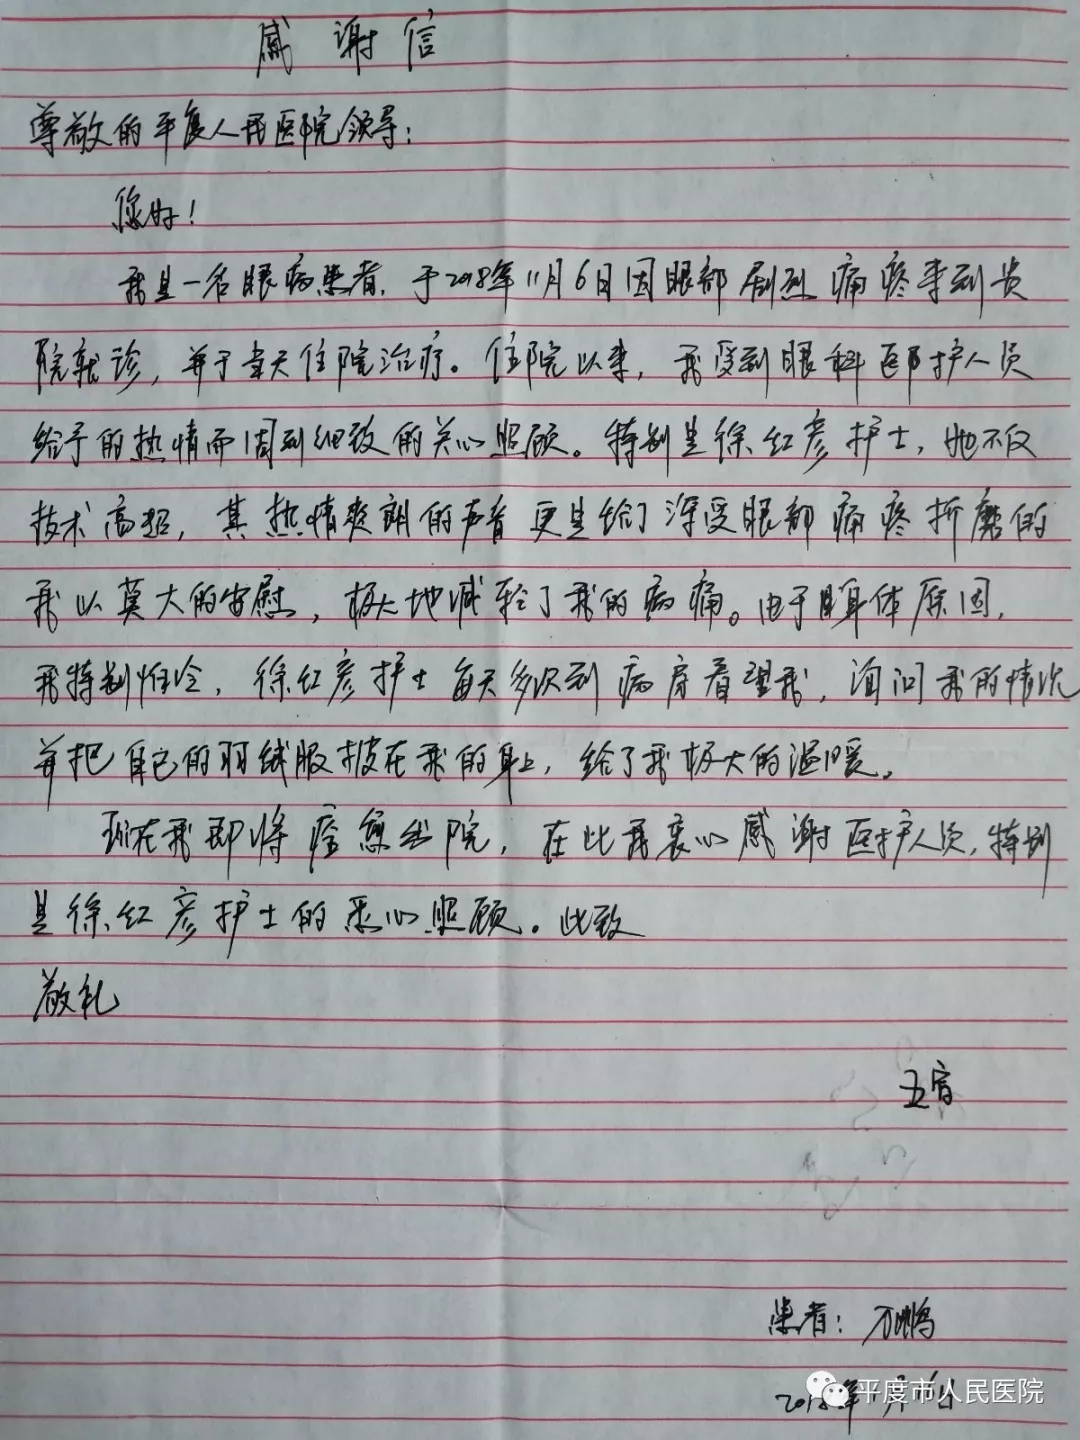 感谢信
尊敬的平度人民医院领导：
您好！
我是一名眼病患者，于2018年11月6日因眼部剧烈痛疼来到贵
院就诊，并于当天住院治疗。住院以来，我受到眼科医护人员
给予的热情而周到细致的关心照顾。特别是徐红彦护士，她不仅
技术高超，其热情爽朗的声音更是给了深受眼部痛疼折磨的
我以莫大的安慰，极大地减轻了我的病痛。由于身体原因，
我特别怕冷，徐红彦护士每天多次到病房看望我，询问我的情况
并把自己的羽绒服披在我的身上，给了我极大的温暖。
现在我即将痊愈出院，在此我衷心感谢医护人员，特别
是徐红彦护士的悉心照顾。此致
敬礼
患者：万鹏
2018年
平度市人民医院